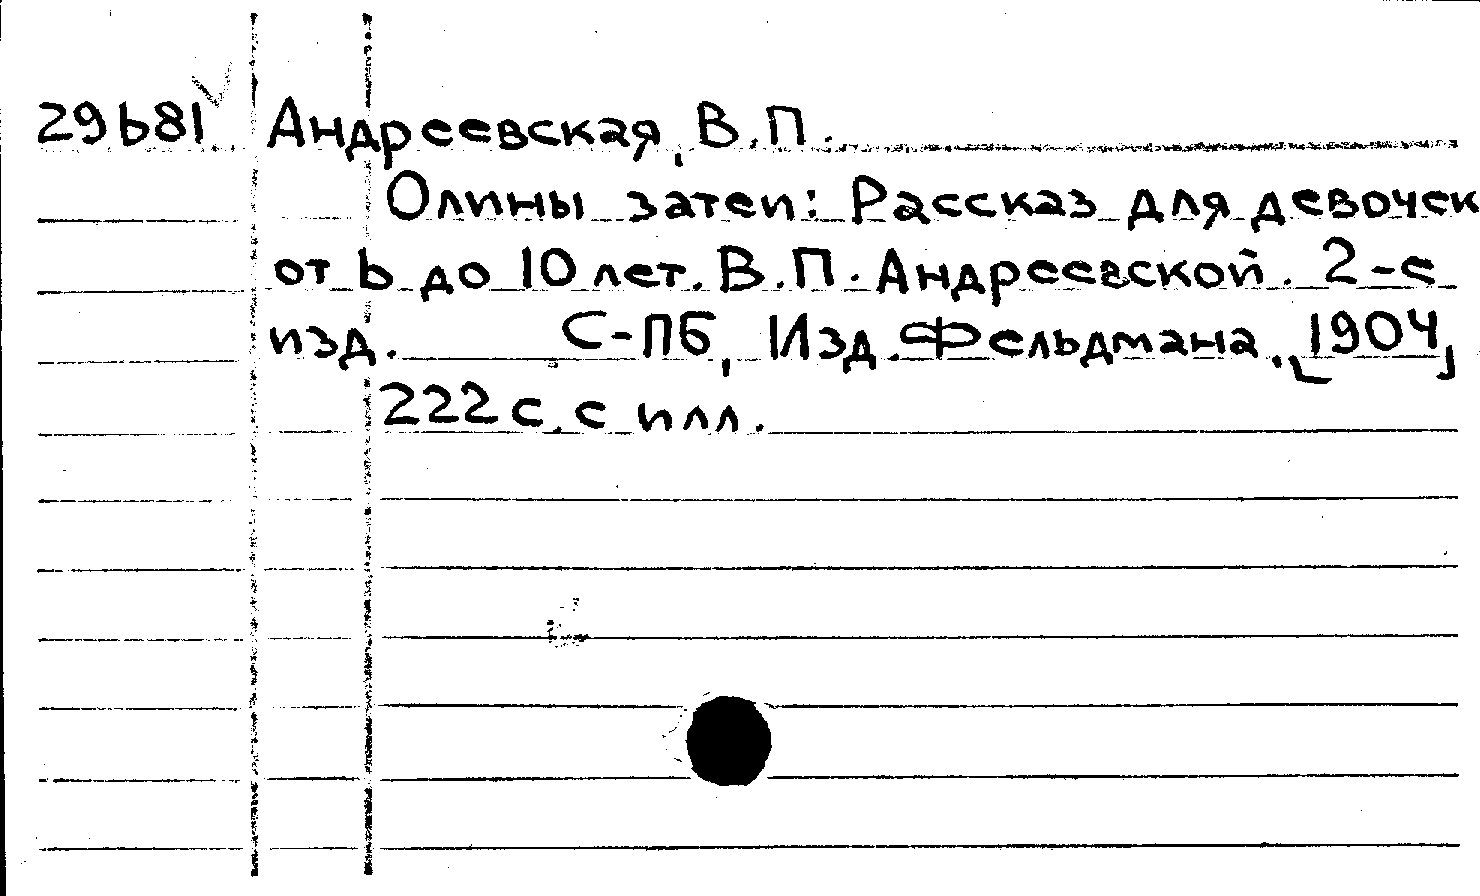 29681 Андреевская, В.П.
Олины затеи: Рассказ для девочек
от 6 до 10 лет. В.П. Андреевской. 2-е
изд. С-Пб, Изд. Фельдмана. [1904]
222 с. с илл.